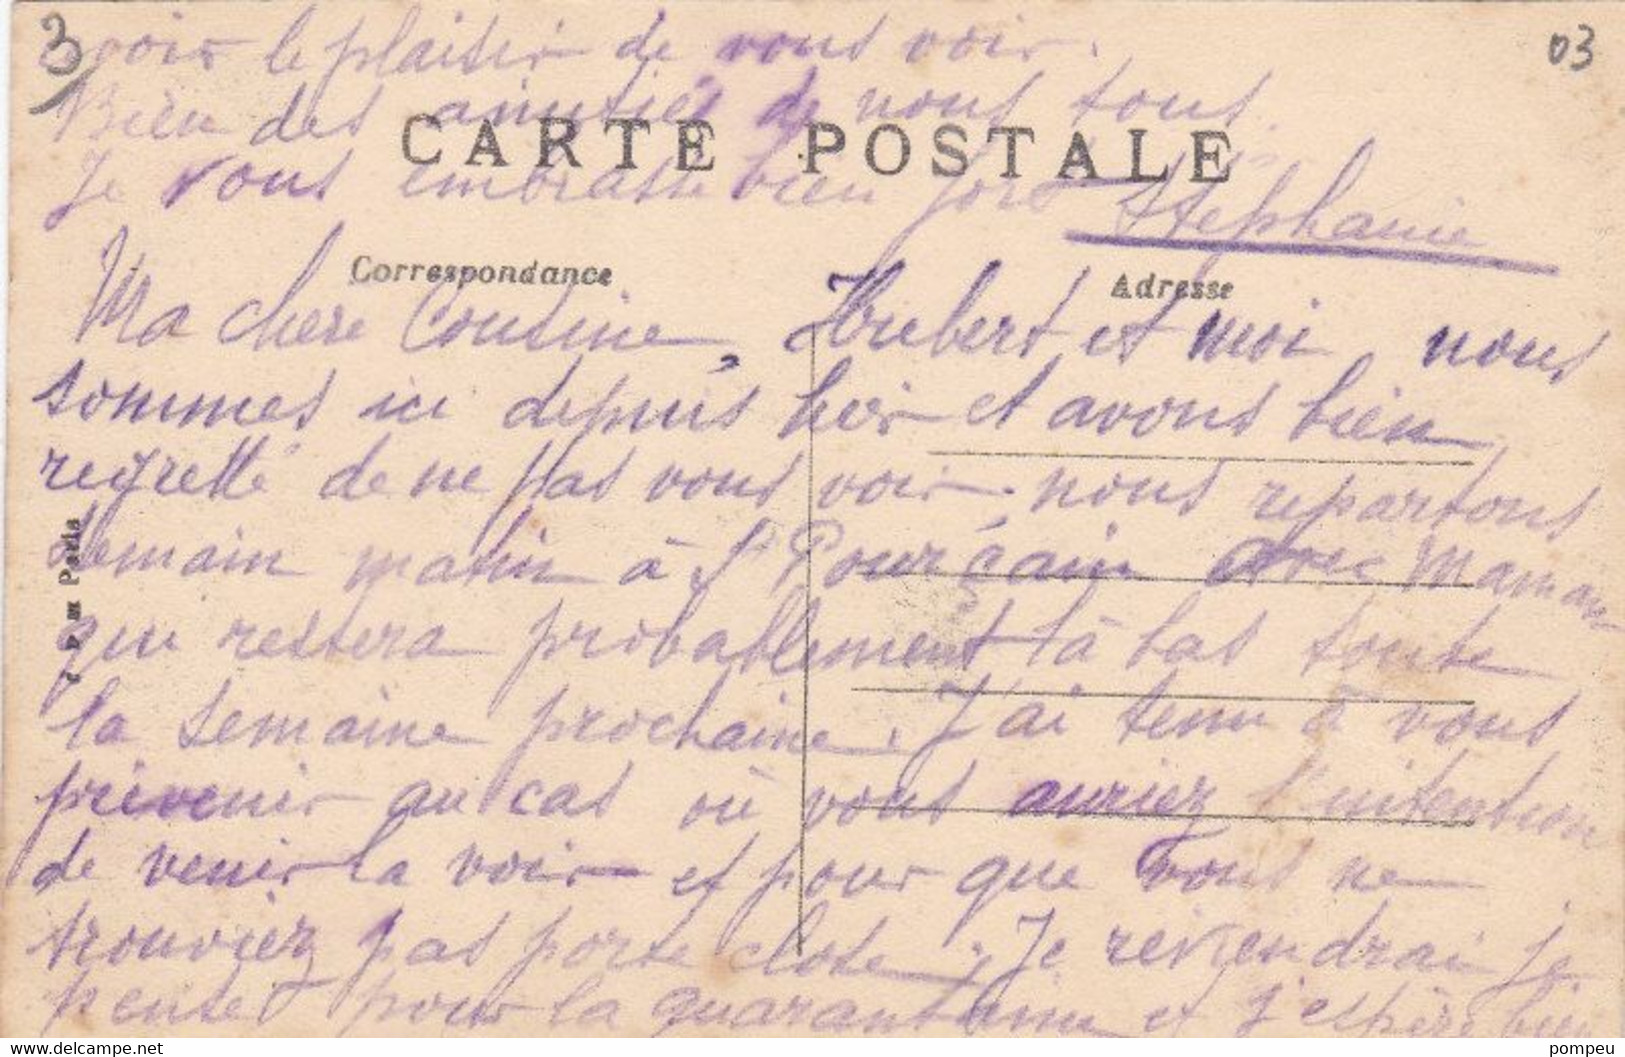 3
03
avoir le plaisir de vous voir.
Bien des amitiés de nous tous
CARTE POSTALE
Je vous embrasse bien fort Stéphanie
Correspondance
Adresse
Ma chère Cousine, Hubert et moi nous
sommes ici depuis hier et avons bien
regretté de ne pas vous voir. nous repartons
demain matin à St Pourçain avec Maman
qui restera probablement là bas toute
la semaine prochaine. J'ai tenu à vous
prévenir au cas où vous auriez l'intention
de venir la voir et pour que vous ne
trouviez pas porte close; Je reviendrai je
pense pour la quarantaine et j'espère bien
Paris
pompeu